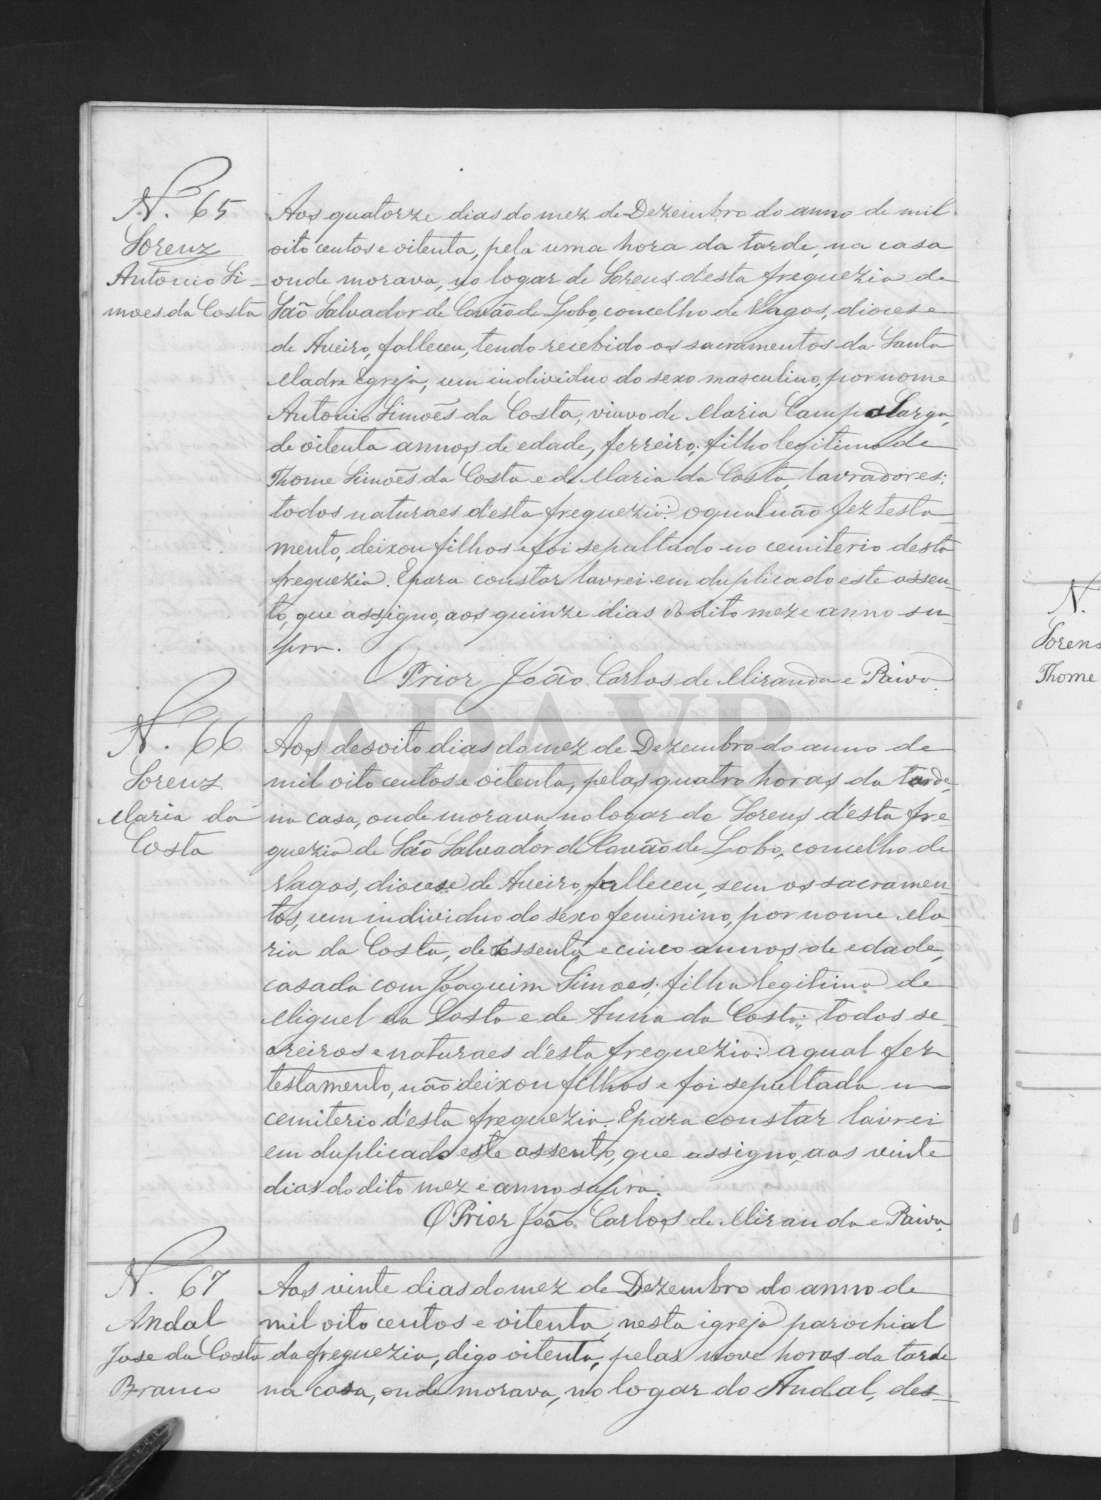 N. 65
Sorenz
Antonio Si-
moes da Costa
Aos quatorze dias do mez de Dezembro do anno de mil
oito centos e oitenta, pela uma hora da tarde, na casa
onde morava, no logar de Sorens desta freguezia de
São Salvador de Covão de Lobo, concelho de Vagos, diocese
de Aveiro, falleceu, tendo recebido os sacramentos da Santa
Madre Egreja, um individuo do sexo masculino, por nome
Antonio Simoẽs da Costa, viuvo de Maria Campos Larga,
de oitenta annos de edade, ferreiro, filho legitimo de
Thome Simoẽs da Costa e de Maria da Costa, lavradores;
todos naturaes d'esta freguezia: o qual não fez testa-
mento, deixou filhos e foi sepultado no cemiterio desta
freguezia. E para constar lavrei em duplicado este assen-
to, que assigno, aos quinze dias do dito mez e anno su-
pra.
O Prior João Carlos de Miranda e Paiva
N. 66
Sorenz
Maria da
Costa
Aos desoito dias do mez de Dezembro do anno de
mil oito centos e oitenta, pelas quatro horas da tarde,
na casa, onde morava, no logar de Sorens d'esta fre
guezia de São Salvador de Covão de Lobo, concelho de
Vagos, diocese de Aveiro, falleceu, sem os sacramen-
tos, um individuo do sexo feminino, por nome Ma-
ria da Costa, de sessenta e cinco annos de edade,
casada com Joaquim Simoes; filha legitima de
Miguel da Costa e de Anna da Costa; todos se-
areiros e naturaes d'esta freguezia: a qual fez
testamento, não deixou filhos e foi sepultada no
cemiterio d'esta freguezia. E para constar lavrei
em duplicado este assento, que assigno, aos vinte
dias do dito mez e anno supra.
O Prior João Carlos de Miranda e Paiva
N. 67
Andal
Jose da Costa
Branco
Aos vinte dias do mez de Dezembro do anno de
mil oito centos e oitenta, nesta igreja parochial
da freguezia, digo oitenta, pelas nove horas da tarde
na casa, onde morava, no logar do Andal, des-
N.
Sorens
Thome
ADAVR